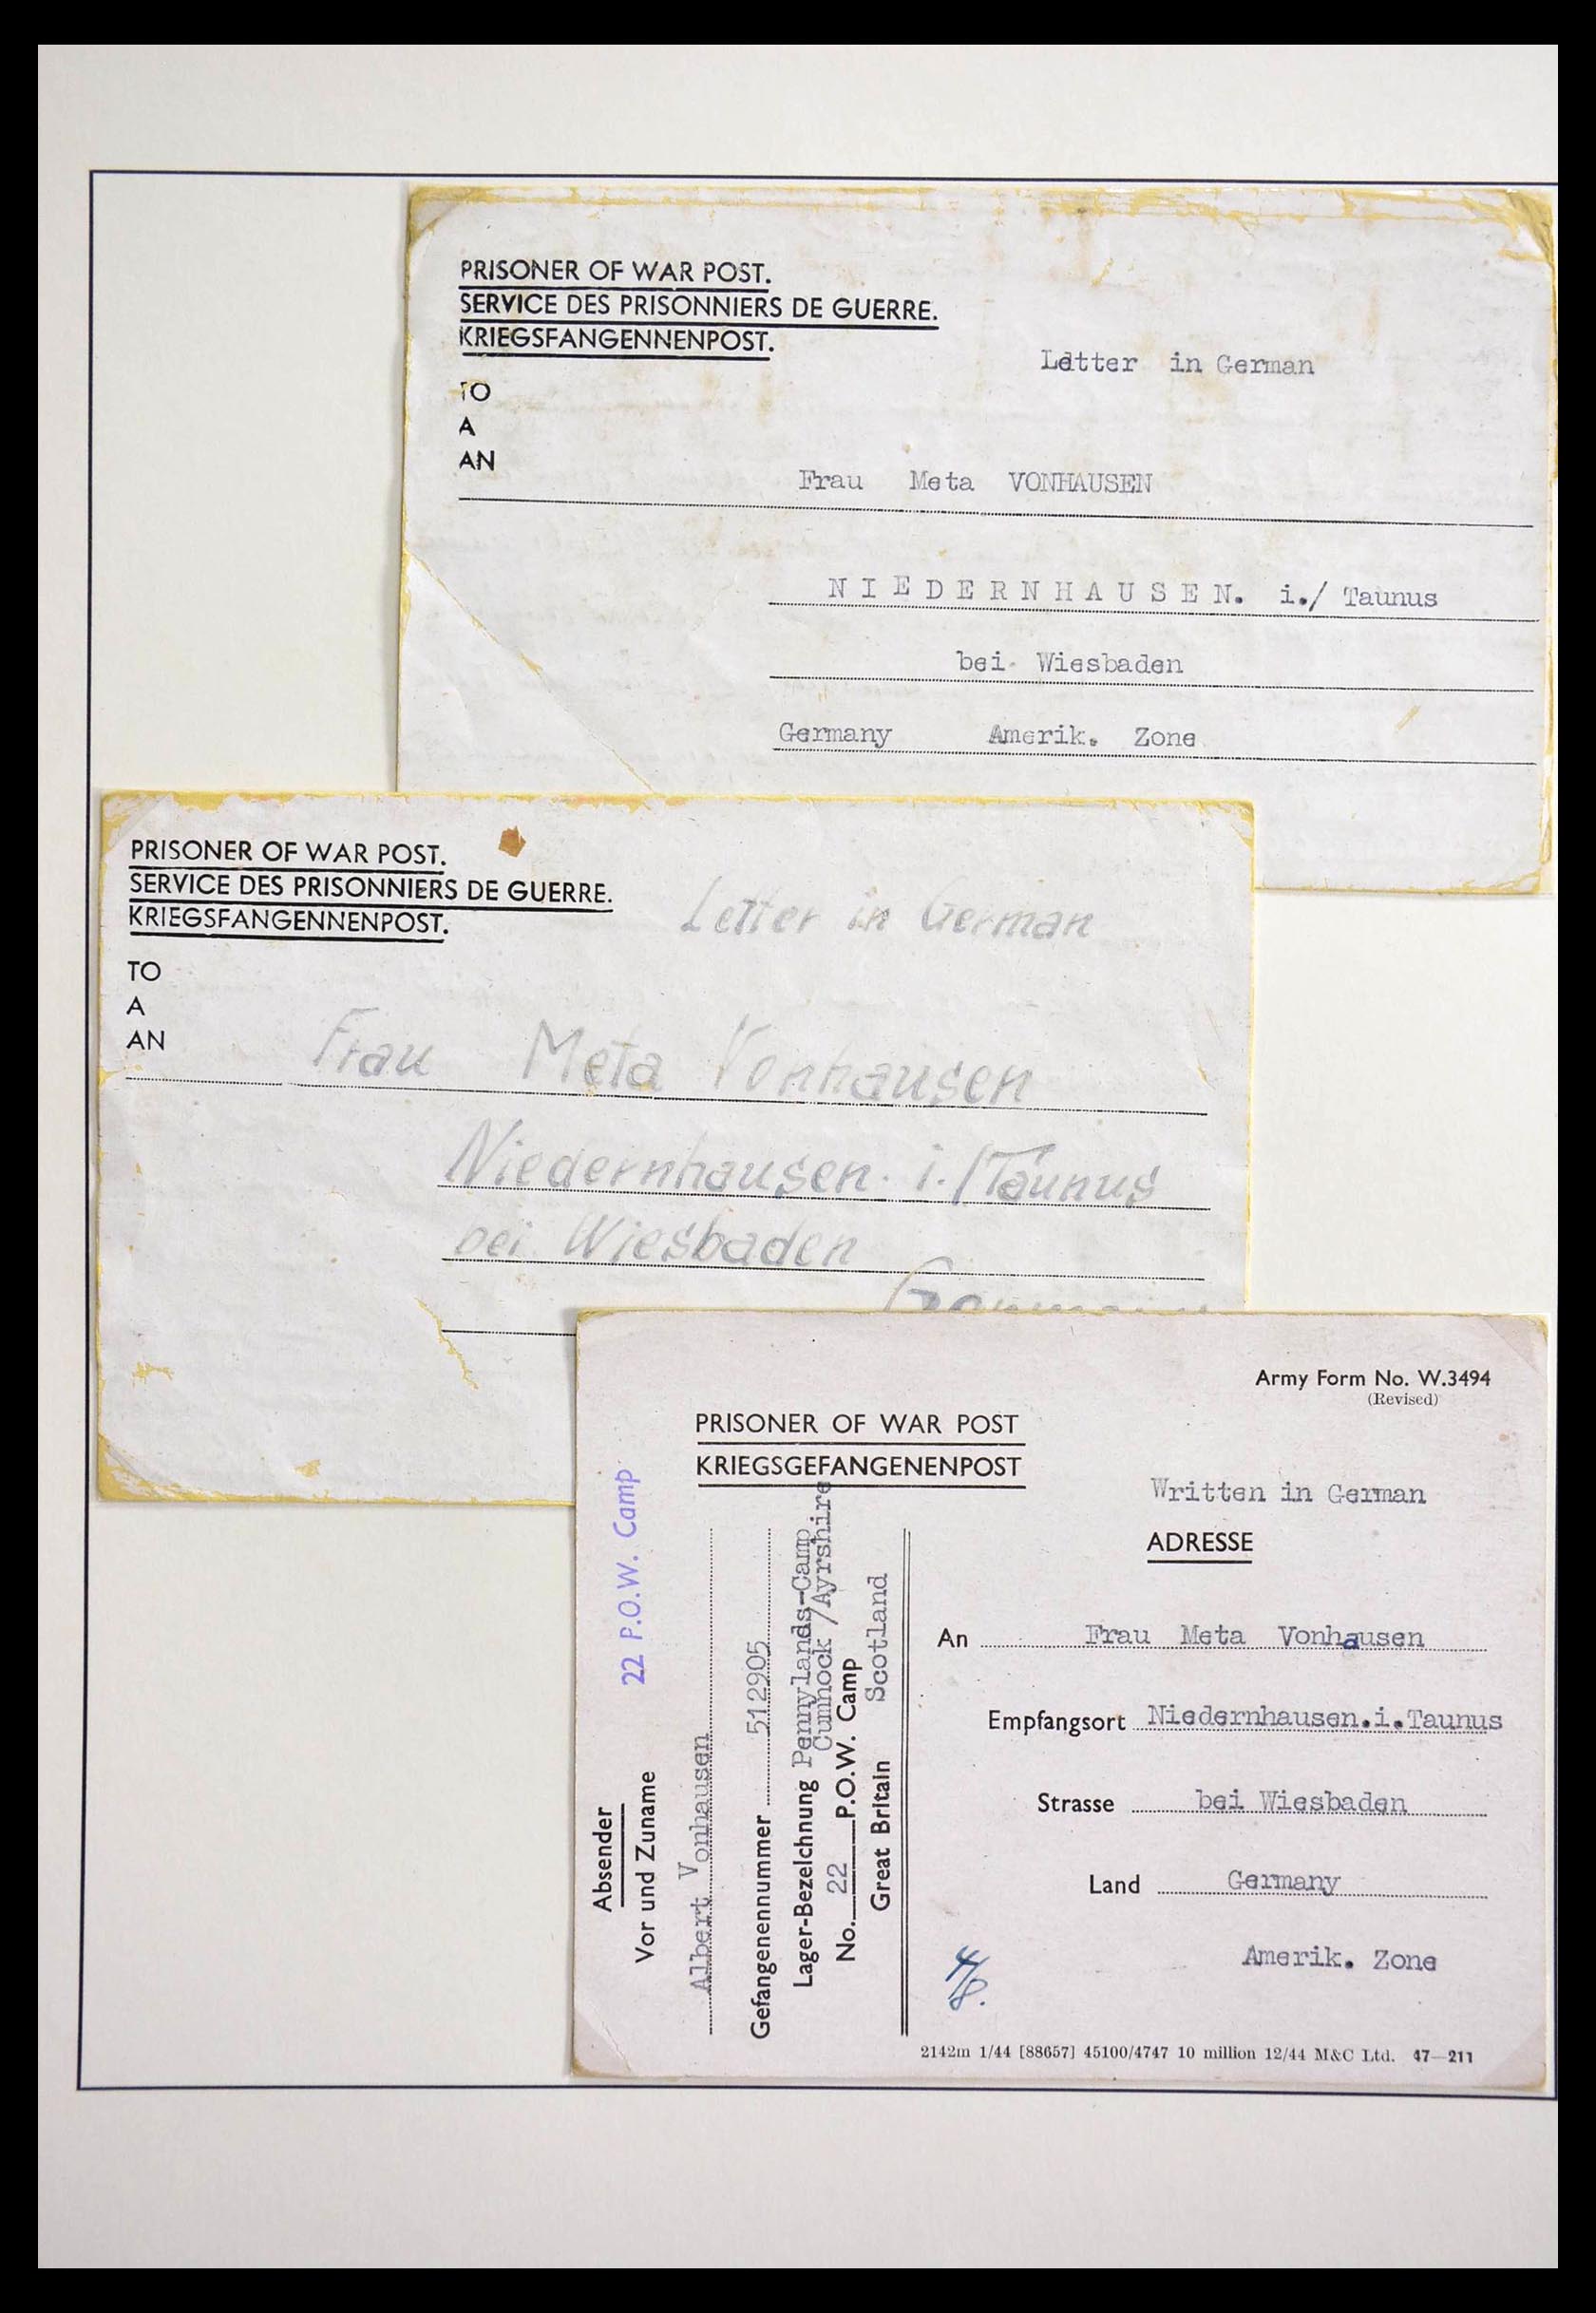 PRISONER OF WAR POST.
SERVICE DES PRISONNIERS DE GUERRE.
KRIEGSFANGENNENPOST.
Letter in German
TO
A
AN
Frau Meta VONHAUSEN
NIEDERNHAUSEN. i./ Taunus
bei Wiesbaden
Germany Amerik. Zone
PRISONER OF WAR POST.
SERVICE DES PRISONNIERS DE GUERRE.
KRIEGSFANGENNENPOST.
Letter in German
TO
A
AN
Frau Meta Vonhausen
Niedernhausen. i./Taunus
bei Wiesbaden
Army Form No. W.3494
(Revised)
PRISONER OF WAR POST
KRIEGSGEFANGENENPOST
Written in German
ADRESSE
An Frau Meta Vonhausen
Empfangsort Niedernhausen.i.Taunus
Strasse bei Wiesbaden
Land Germany
Amerik. Zone
4/8.
2142m 1/44 [88657] 45100/4747 10 million 12/44 M&C Ltd. 47—211
Absender
22 P.O.W. Camp
Vor und Zuname
Albert Vonhausen
Gefangenennummer 512905
Lager-Bezeichnung Pennylands-Camp
Cumnock /Ayrshire
No. 22 P.O.W. Camp
Great Britain Scotland